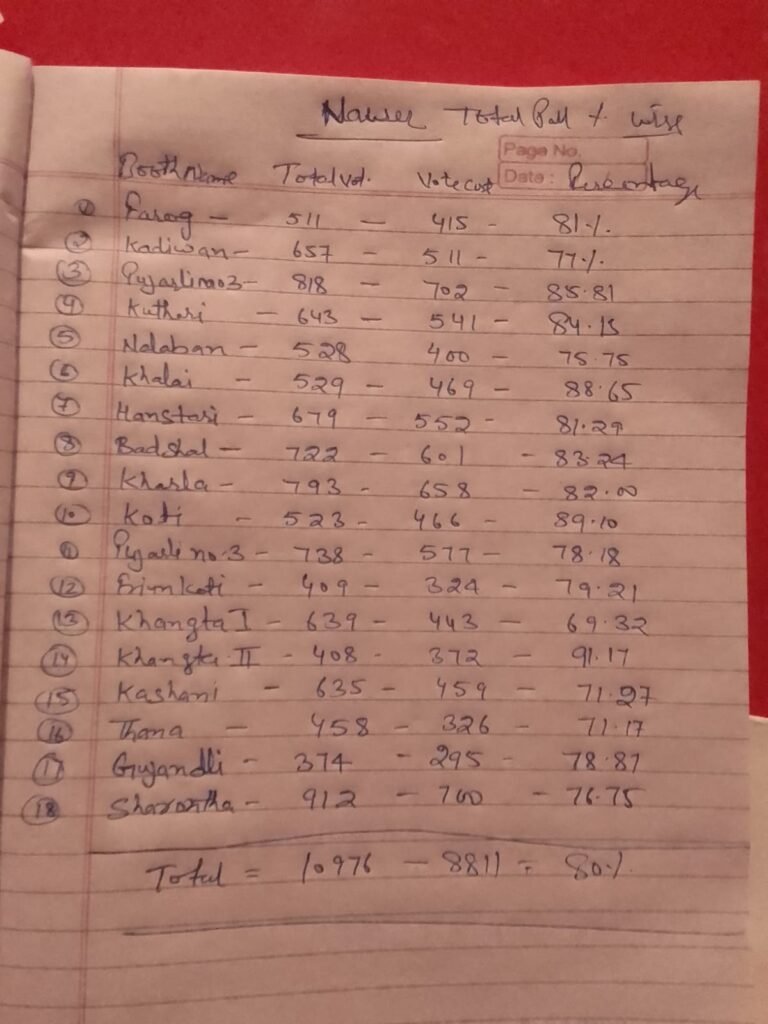 Nawer Total Poll % wise
Page No.
Date:
Booth Name Total Vot. Vote Cast Perkontage
① Farog - 511 - 415 - 81%.
② Kadiwan - 657 - 511 - 77%.
③ Pujarli no 3 - 818 - 702 - 85.81
④ Kuthari - 643 - 541 - 84.13
⑤ Nalaban - 528 400 - 75.75
⑥ Khalai - 529 - 469 - 88.65
⑦ Hanstari - 679 - 552 - 81.29
⑧ Badshal - 722 - 601 - 83.24
⑨ Kharla - 793 - 658 - 82.00
⑩ Koti - 523 - 466 - 89.10
⑪ Pujarli no. 3 - 738 - 577 - 78.18
⑫ - 409 - 324 - 79.21
⑬ Khangta I - 639 - 443 - 69.32
⑭ Khangta II - 408 - 372 - 91.17
⑮ Kashani - 635 - 459 - 71.27
⑯ Thana - 458 - 326 - 71.17
⑰ Gujandli - 374 - 295 - 78.87
⑱ Sharontha - 912 - 700 - 76.75
Total = 10976 - 8811 = 80%.